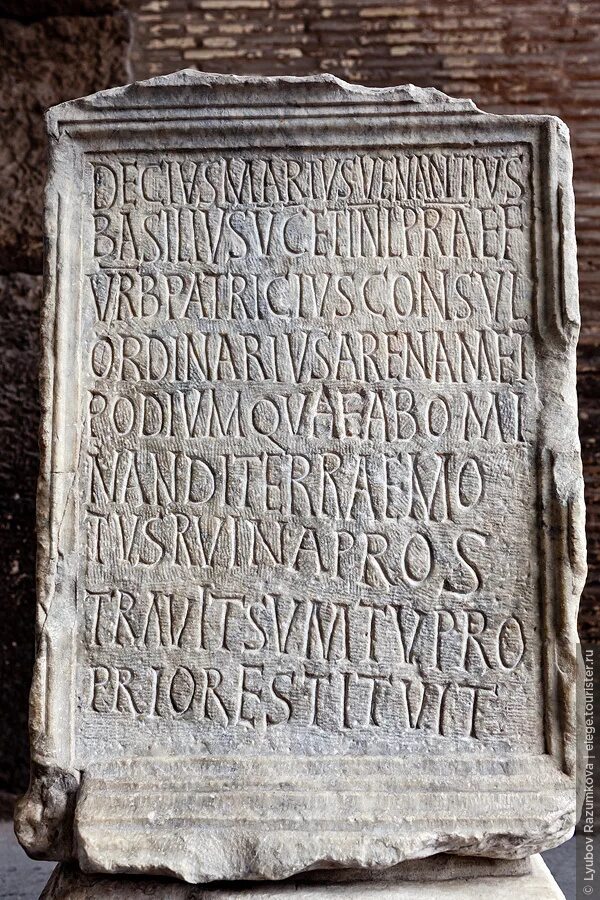 DECIVSMARIVSVENANTIVS
BASILIVSVCETINLPRAEF
VRBPATRICIVSCONSVL
ORDINARIVSARENAMET
PODIVMQVAEABOMI
NANDITERRAEMO
TVSRVINAPROS
TRAVITSVMTVPRO
PRIORESTITVIT
© Lyubov Razumkova | elege.tourister.ru